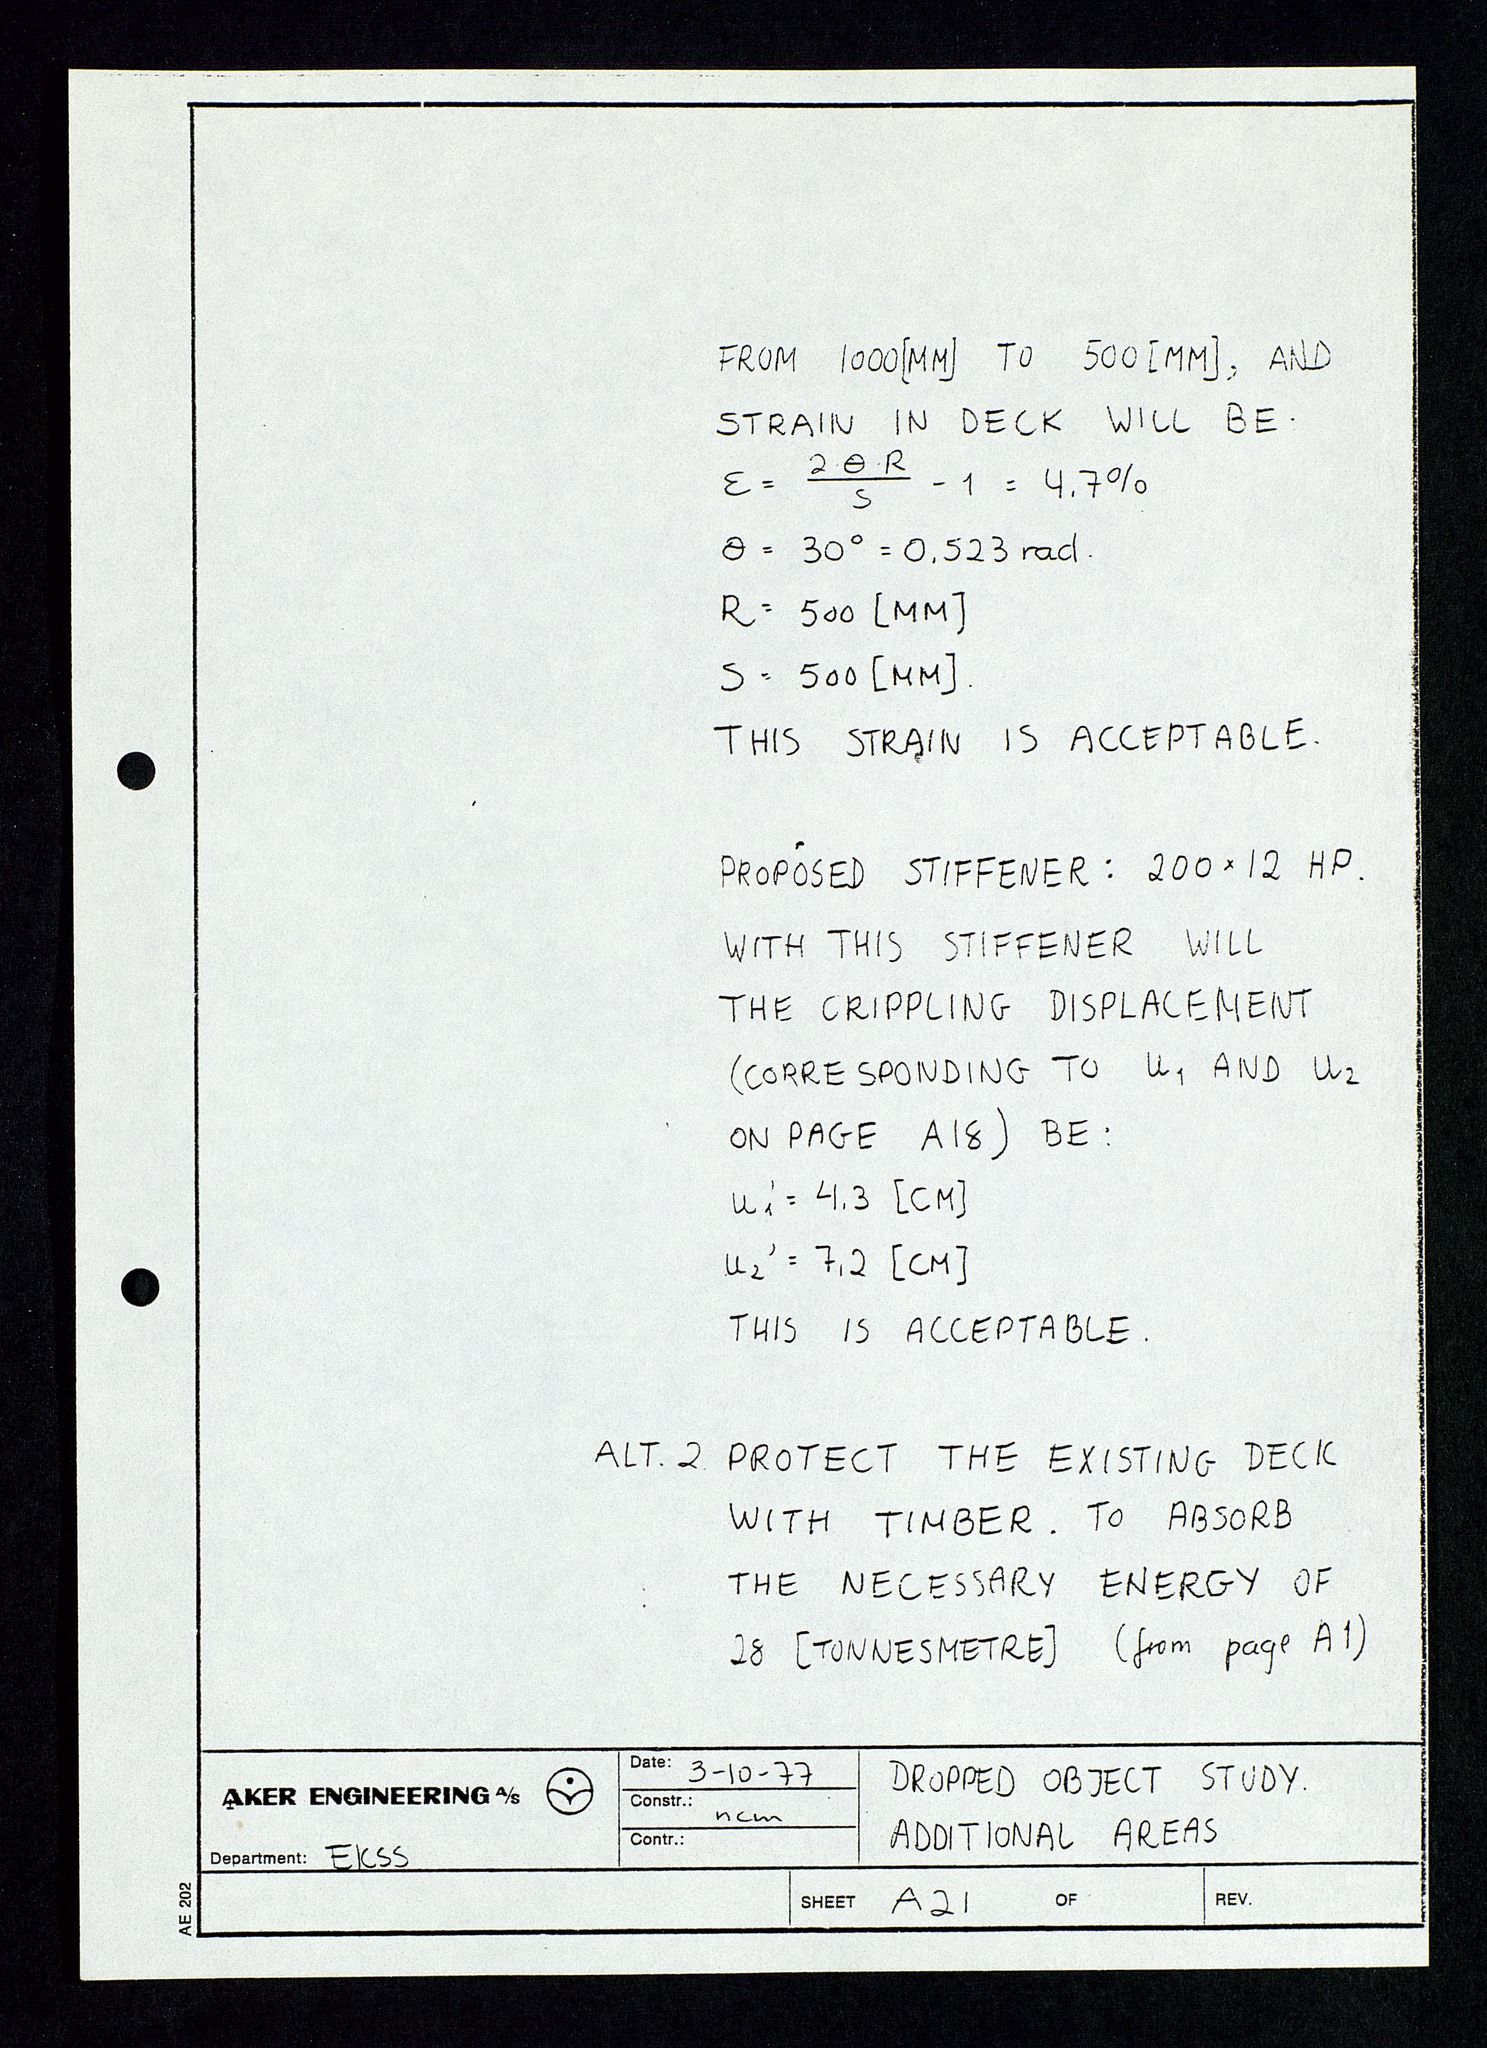 FROM 1000[MM] TO 500[MM], AND
STRAIN IN DECK WILL BE.
ε = 2·θ·R / S - 1 = 4,7%
θ = 30° = 0,523 rad.
R = 500 [MM]
S = 500 [MM].
THIS STRAIN IS ACCEPTABLE.
PROPOSED STIFFENER: 200×12 HP.
WITH THIS STIFFENER WILL
THE CRIPPLING DISPLACEMENT
(CORRESPONDING TO u₁ AND u₂
ON PAGE A18) BE:
u₁' = 4,3 [CM]
u₂' = 7,2 [CM]
THIS IS ACCEPTABLE.
ALT. 2. PROTECT THE EXISTING DECK
WITH TIMBER. TO ABSORB
THE NECESSARY ENERGY OF
28 [TONNESMETRE] (from page A1)
AKER ENGINEERING A/S
Department: EKSS
Date: 3-10-77
Constr.: ncm
Contr.:
DROPPED OBJECT STUDY.
ADDITIONAL AREAS
SHEET A21 OF
REV.
AE 202